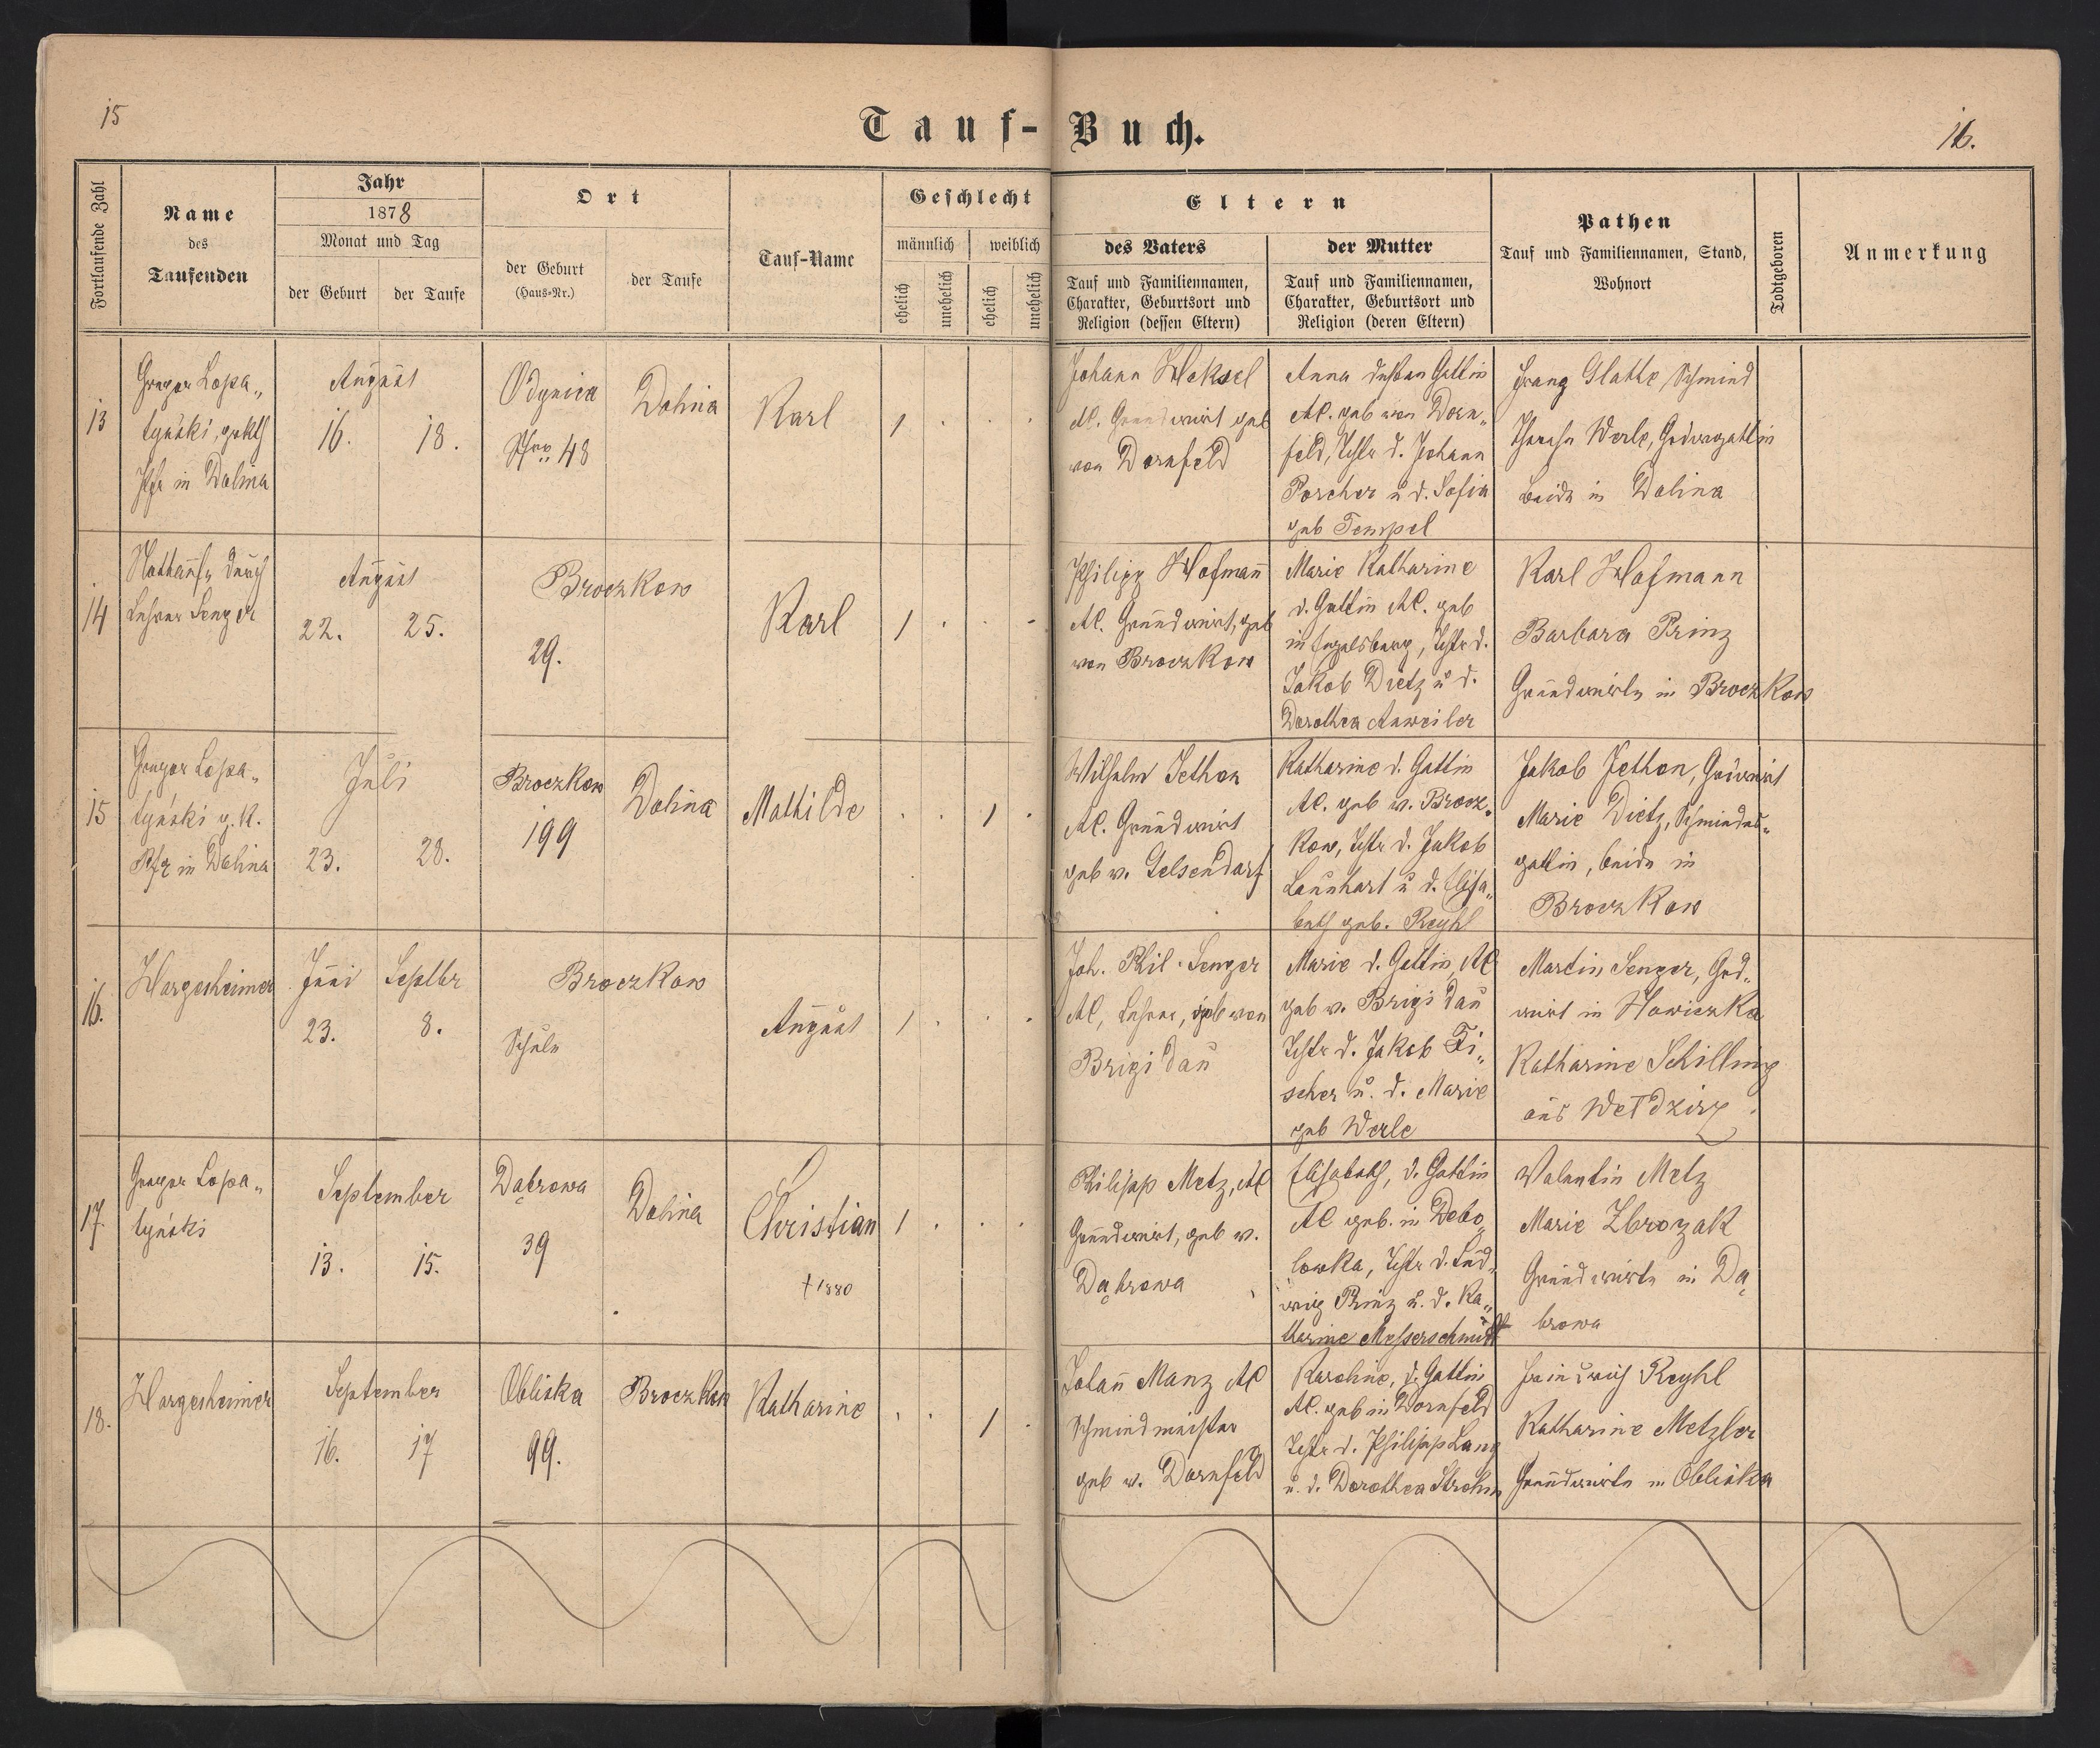 15
Tauf-Buch.
16.
Fortlaufende Zahl
Name
des
Taufenden
Jahr
1878
Monat und Tag
der Geburt
der Taufe
Ort
der Geburt
(Haus-Nr.)
der Taufe
Tauf-Name
Geschlecht
männlich
weiblich
ehelich
unehelich
ehelich
unehelich
Eltern
des Vaters
Tauf und Familiennamen,
Charakter, Geburtsort und
Religion (dessen Eltern)
der Mutter
Tauf und Familiennamen,
Charakter, Geburtsort und
Religion (deren Eltern)
Pathen
Tauf und Familiennamen, Stand,
Wohnort
Todtgeboren
Anmerkung
13
Gregor Lopa„
tyński, gr kth
Pfr in Dolina
August
16.
18.
Odynica
48
Dolina
Karl
1
Johann Heksel
AC. Grundwirt geb
von Dornfeld
Anna dessen Gattin
AC. geb von Dorn„
feld, Tchtr d. Johann
Porcher u d. Sofia
geb Tempel
Franz Glatte, Schmied
Theresa Werle, Grdwrgattin
beide in Dolina
14
Nothtaufe durch
Lehrer Senger
August
22.
25.
Broczkow
29.
Karl
1
Philipp Hofmañ
AC. Grundwirt, geb
von Broczkow
Marie Katharine
d. Gattin AC. geb
in Engelsberg, Tchtr d.
Jakob Dietz u d.
Dorothea Anweiler
Karl Hofmann
Barbara Prinz
Grundwirte in Broczkow
15
Gregor Lopa„
tyński g. k.
Pfr in Dolina
Juli
23.
28.
Broczkow
199
Dolina
Mathilde
1
Wilhelm Jethon
AC. Grundwirt
geb v. Gelsendorf
Katharine d. Gattin
AC. geb v. Brocz„
kow, Tchtr d. Jakob
Launhart u d. Elisa„
beth geb. Reyhl
Jakob Jethon, Grdwirt
Marie Dietz, Schmieds„
gattin, beide in
Broczkow
16.
Hargesheimer
Juni
Septbr
23.
8.
Broczkow
Schule
August
1
Joh. Phil. Senger
AC, Lehrer, geb von
Brigidau
Marie d. Gattin, AC
geb v. Brigidau
Tchtr d. Jakob Fi„
scher u. d. Marie
geb Werle
Martin Senger, Grd„
wirt in Howiczka
Katharine Schilling
aus Wełdzirz.
17.
Gregor Lopa„
tyński
September
13.
15.
Dąbrowa
39
Dolina
Christian
† 1880
1
Philipp Metz, AC
Grundwirt, geb v.
Dąbrowa
Elisabeth, d. Gattin
AC geb. in Debo„
lowka, Tchtr d. Lud„
wig Prinz u. d. Ka„
tharine Messerschmidt
Valentin Metz
Marie Zbrozak
Grundwirte in Dą
browa
18.
Hargesheimer
September
16.
17
Obliska
99.
Broczkow
Katharine
1
Johañ Manz AC
Schmiedmeister
geb v. Dornfeld
Karoline, d. Gattin
AC. geb in Dornfeld
Tchtr d. Philipp Lang
u. d. Dorothea Strohm
Heinrich Reyhl
Katharine Metzler
Grundwirte in Obliska